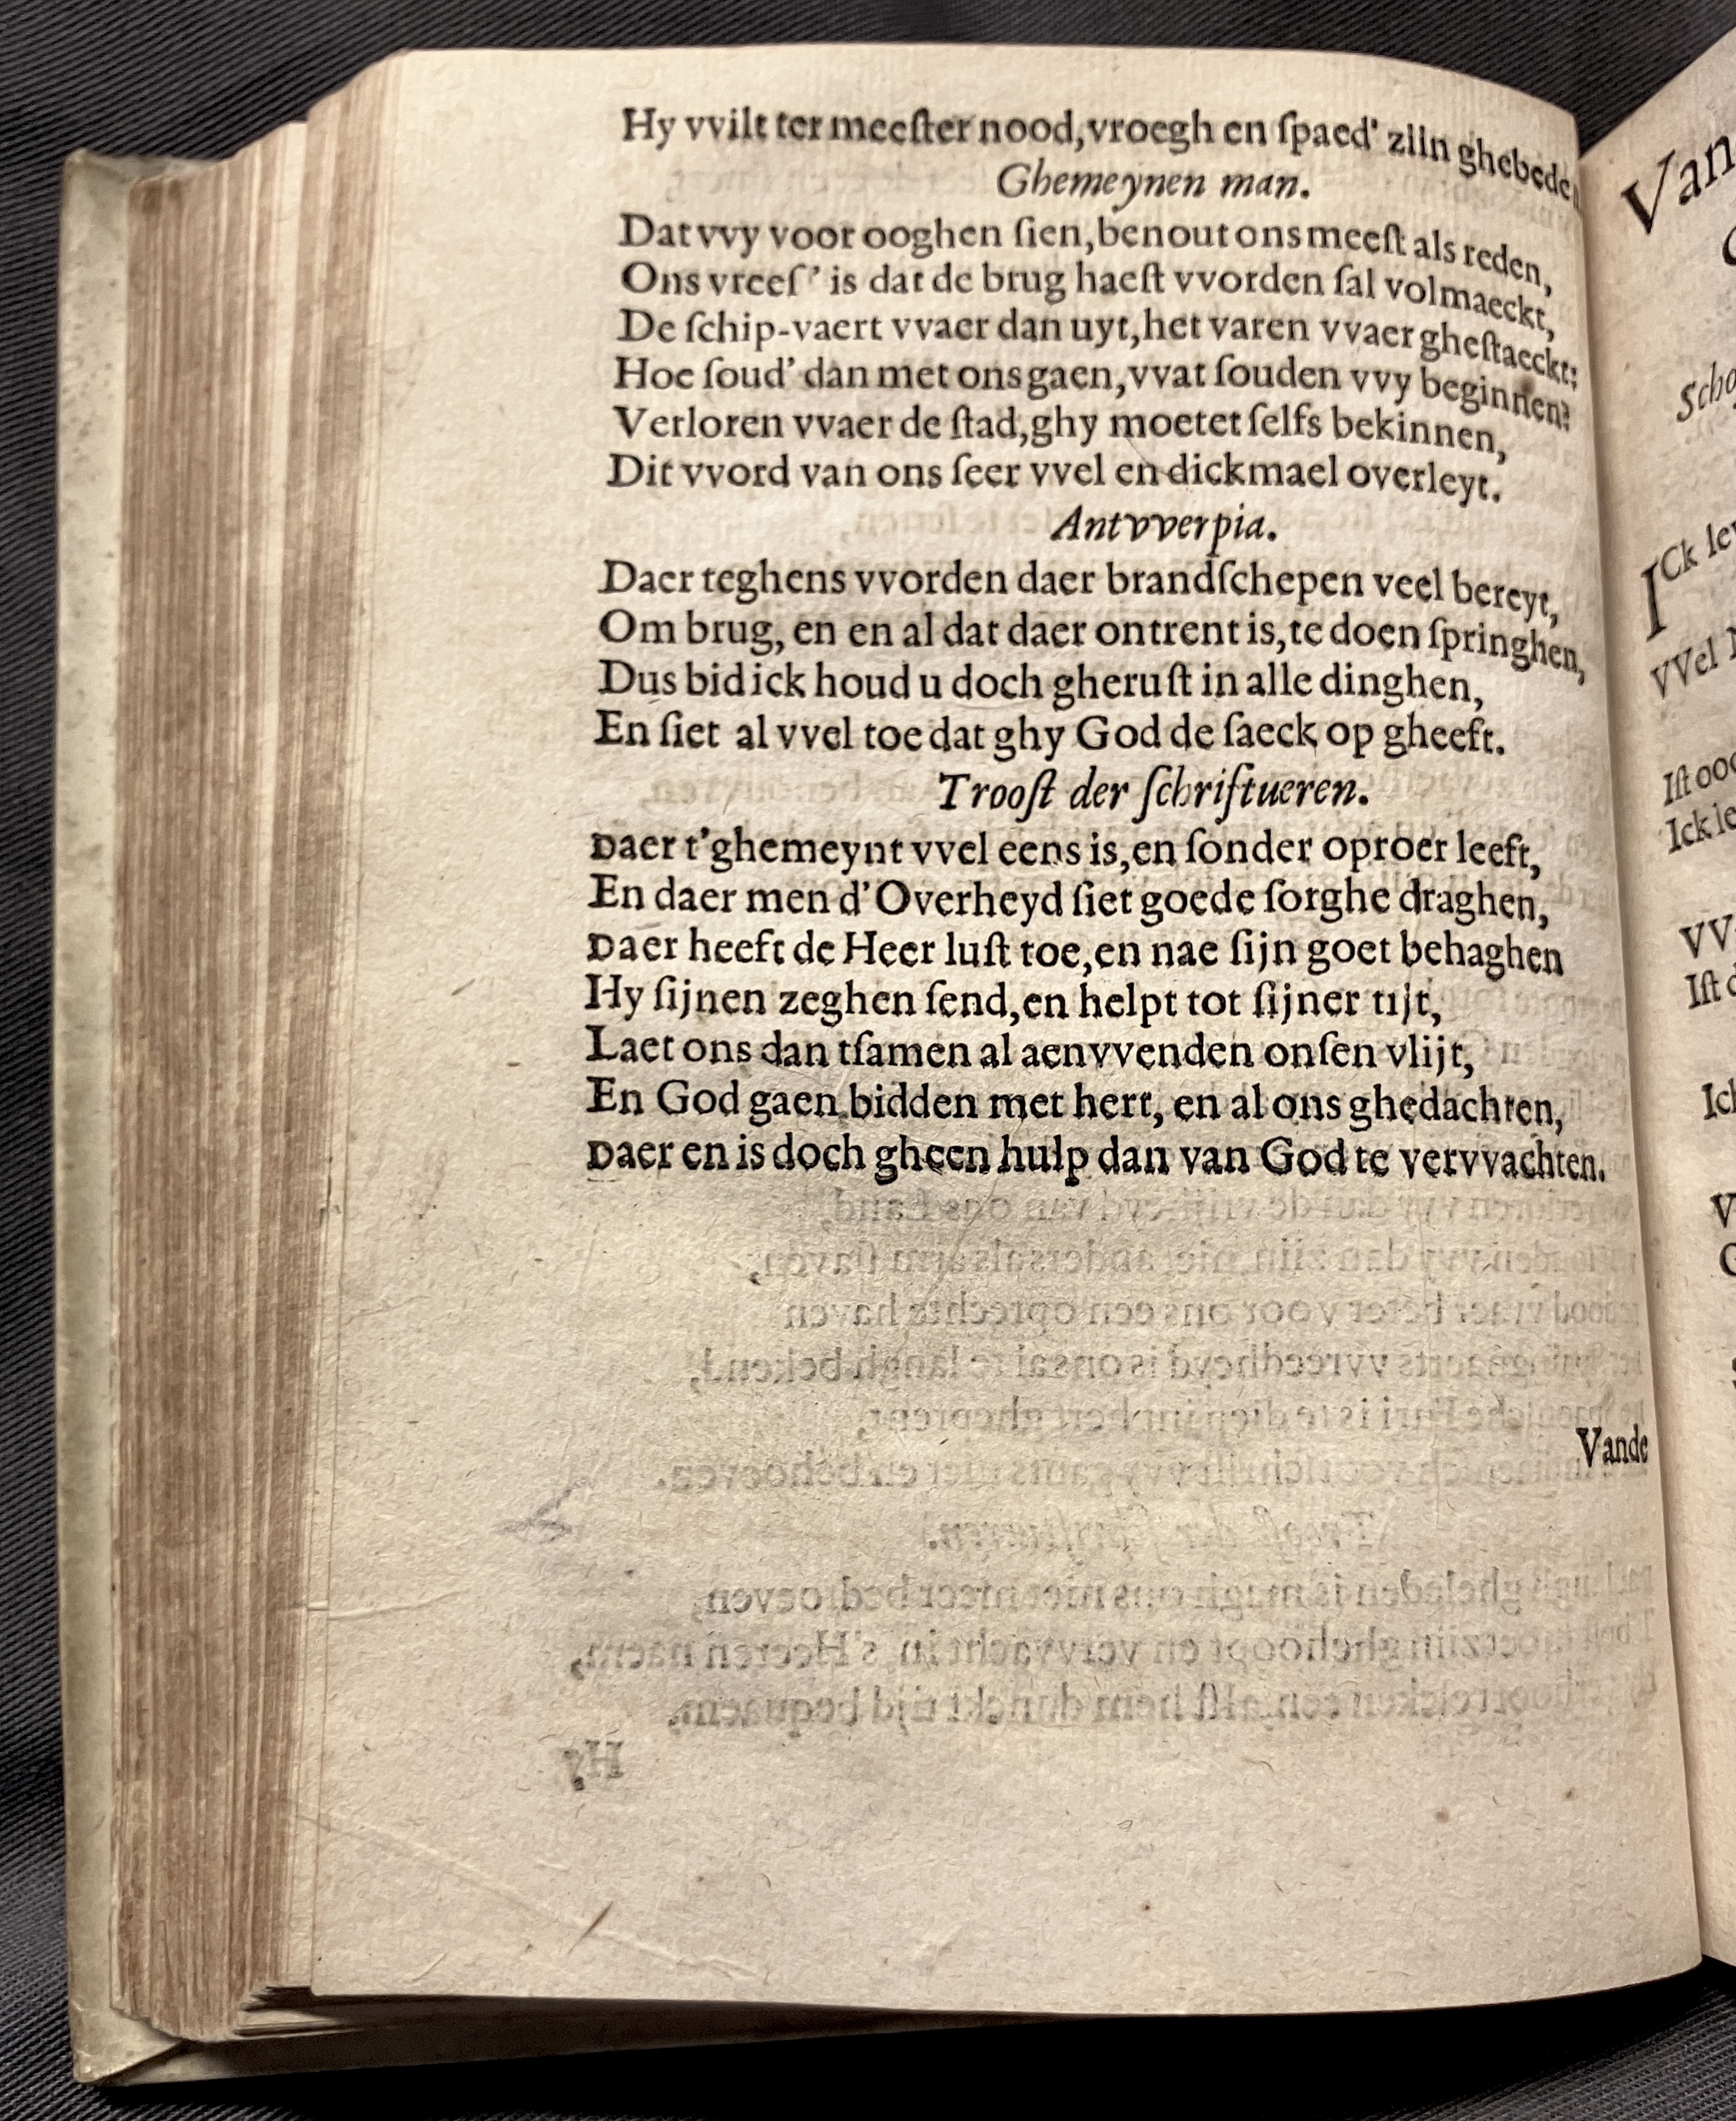 Hy vvilt ter meeſter nood, vroegh en ſpaed' zijn ghebeden
Ghemeynen man.
Dat vvy voor ooghen ſien, benout ons meeſt als reden,
Ons vreeſ' is dat de brug haeſt vvorden ſal volmaeckt,
De ſchip-vaert vvaer dan uyt, het varen vvaer gheſtaeckt:
Hoe ſoud' dan met ons gaen, vvat ſouden vvy beginnen?
Verloren vvaer de ſtad, ghy moetet ſelfs bekinnen,
Dit vvord van ons ſeer vvel en dickmael overleyt.
Antvverpia.
Daer teghens vvorden daer brandſchepen veel bereyt,
Om brug, en en al dat daer ontrent is, te doen ſpringhen,
Dus bid ick houd u doch gheruſt in alle dinghen,
En ſiet al vvel toe dat ghy God de ſaeck op gheeft.
Trooſt der ſchriftueren.
Daer t'ghemeynt vvel eens is, en ſonder oproer leeft,
En daer men d'Overheyd ſiet goede ſorghe draghen,
Daer heeft de Heer luſt toe, en nae ſijn goet behaghen
Hy ſijnen zeghen ſend, en helpt tot ſijner tijt,
Laet ons dan tſamen al aenvvenden onſen vlijt,
En God gaen bidden met hert, en al ons ghedachten,
Daer en is doch gheen hulp dan van God te vervvachten.
Vande
Van
ICk
VVel
Iſt